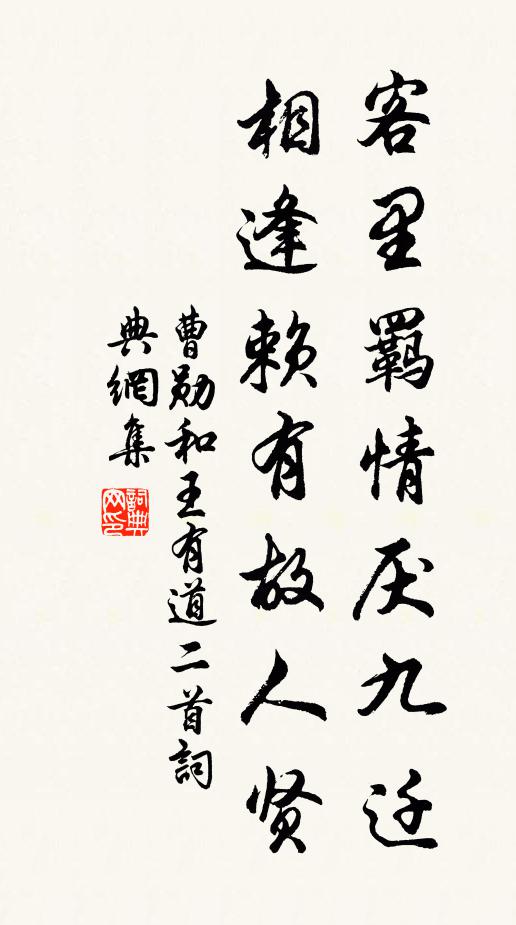 客里羁情厌九迁
相逢赖有故人贤
曹勋和王有道二首詞
典網集
詞典网印